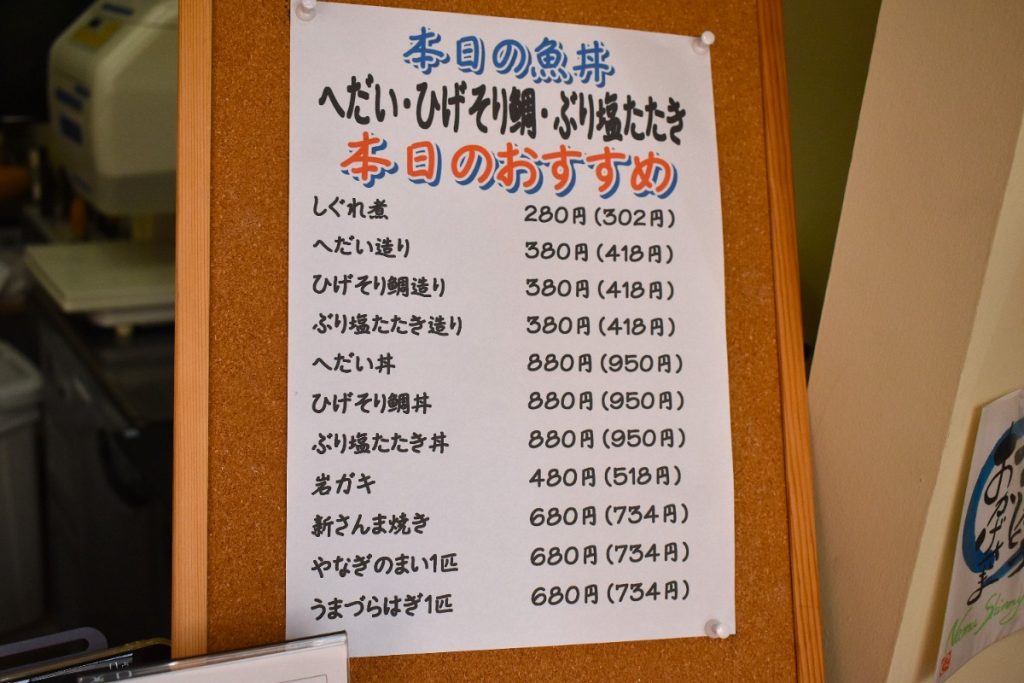 本日の魚丼
へだい・ひげそり鯛・ぶり塩たたき
本日のおすすめ
しぐれ煮 280円(302円)
へだい造り 380円(418円)
ひげそり鯛造り 380円(418円)
ぶり塩たたき造り 380円(418円)
へだい丼 880円(950円)
ひげそり鯛丼 880円(950円)
ぶり塩たたき丼 880円(950円)
岩ガキ 480円(518円)
新さんま焼き 680円(734円)
やなぎのまい1匹 680円(734円)
うまづらはぎ1匹 680円(734円)